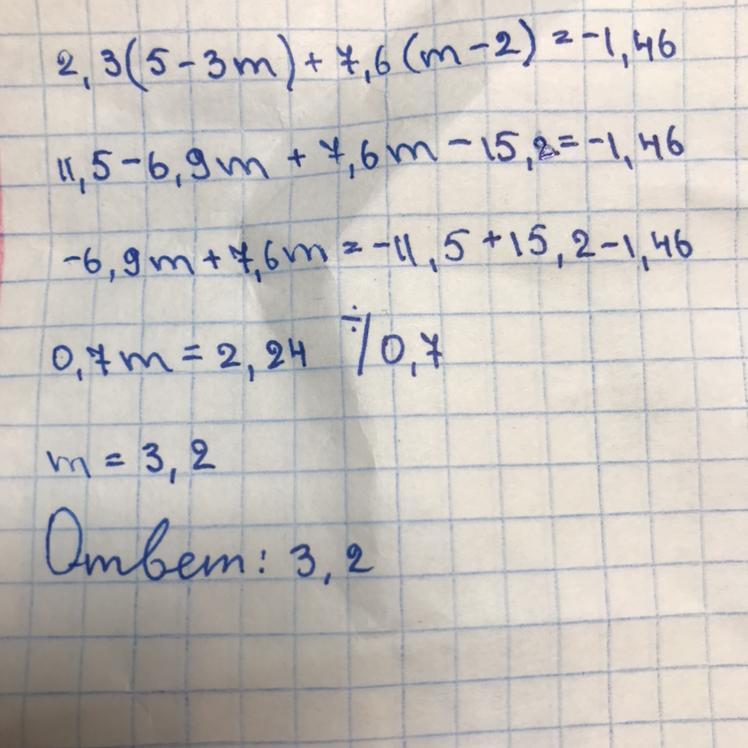 2,3(5-3m)+7,6(m-2)=-1,46
11,5-6,9m+7,6m-15,2=-1,46
-6,9m+7,6m=-11,5+15,2-1,46
0,7m=2,24 ÷/0,7
m=3,2
Ответ: 3,2